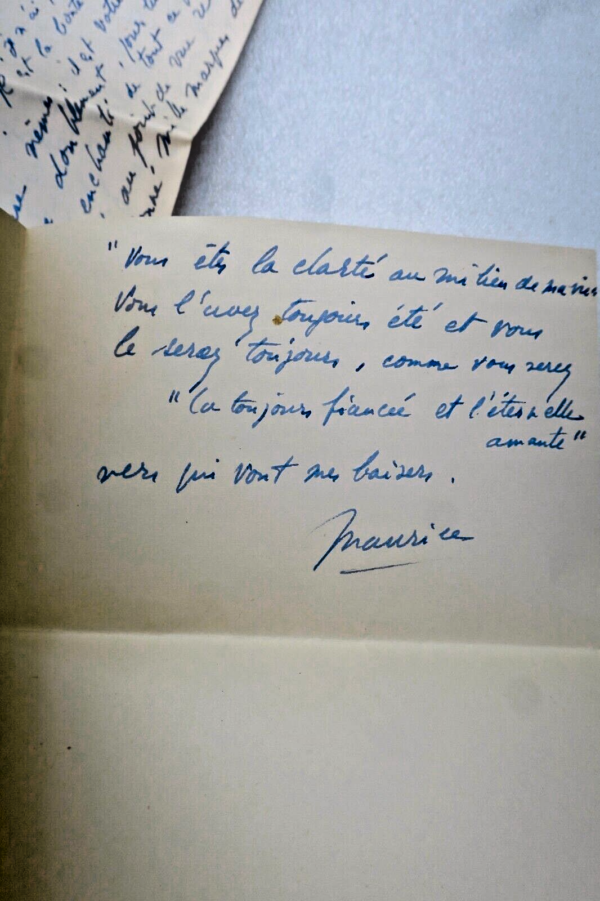 et la
même il est votre
doublement
enchanté de tout ce
au point de vue
mille marques de
"Vous êtes la clarté au milieu de ma vie
Vous l'avez toujours été et vous
le serez toujours, comme vous serez
"la toujours fiancée et l'éternelle
amante"
vers qui vont mes baisers.
Maurice